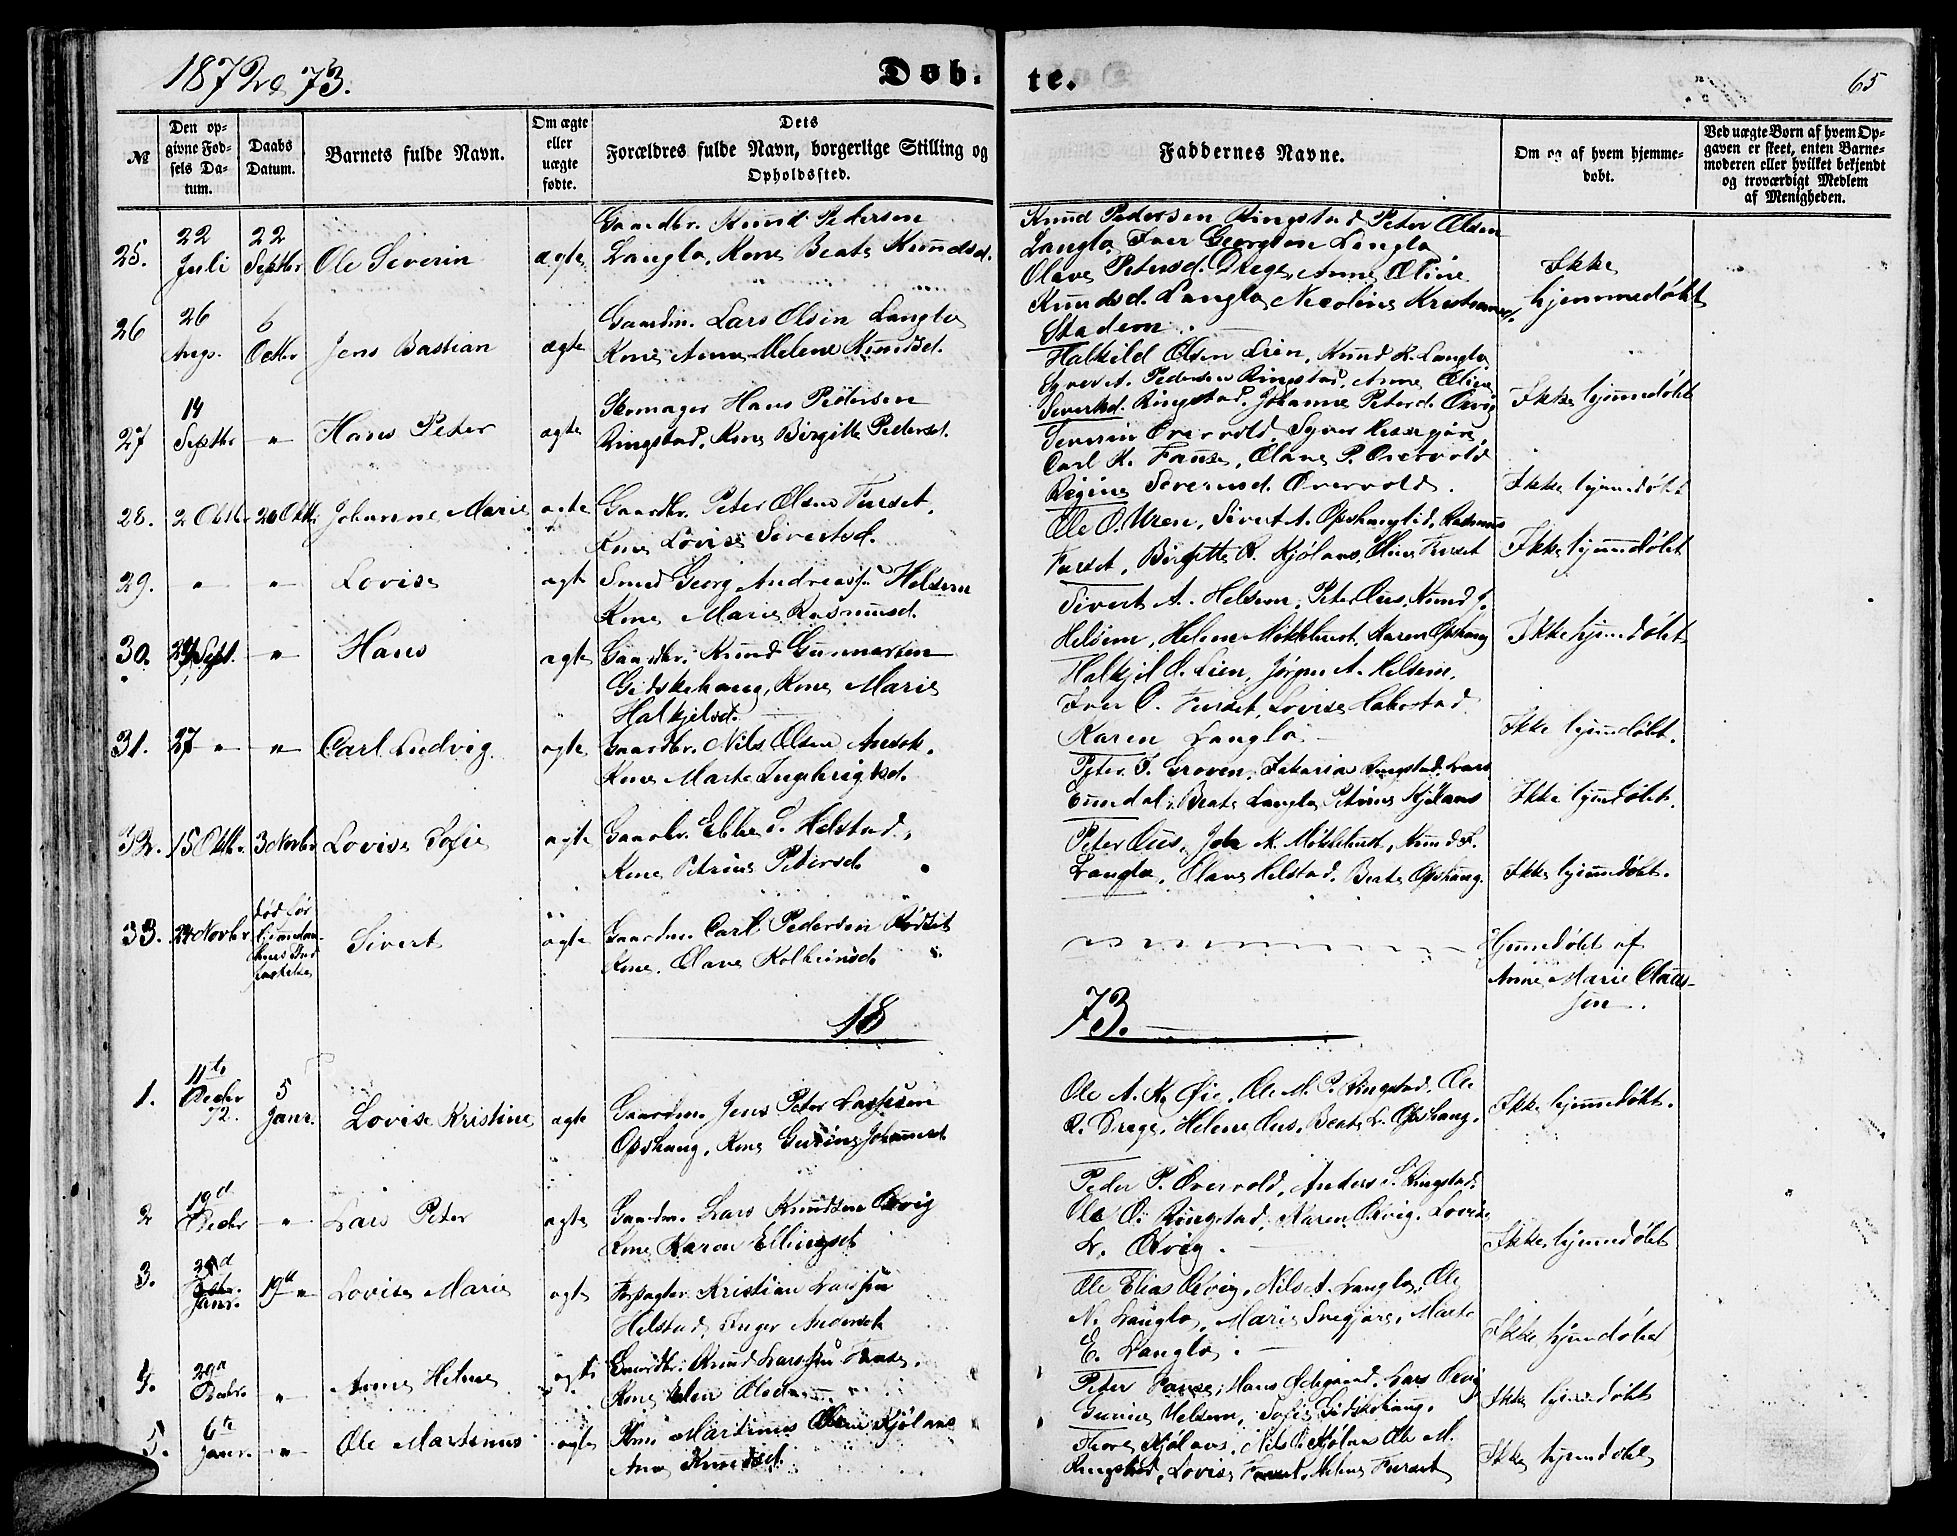 1872 & 73.
Døb-
te.
65
№
Den op-
givne Fød-
sels Da-
tum.
Daabs
Datum.
Barnets fulde Navn.
Om ægte
eller
uægte
fødte.
Dets
Forældres fulde Navn, borgerlige Stilling og
Opholdssted.
Faddernes Navne.
Om og af hvem hjemme-
døbt.
Ved uægte Børn af hvem Op-
gaven er skeet, enten Barne-
moderen eller hvilket bekjendt
og troværdigt Medlem
af Menigheden.
25.
22
Juli
22
Septbr
Ole Severin
ægte
Gaardbr. Knud Petersen
Langlo, Kone Beate Knudsd.
Knud Pedersen Ringstad, Peter Olsen
Langlo, Iver Georgson Langlo
Olave Petersd. Drege, Anne Oline
Knudsd. Langlo, Nicoline
Stadem
Ikke
hjemmedøbt
26
26
Aug.
6
Octbr
Jens Bastian
ægte
Gaardm. Lars Olsen Langlo
Kone Anne Melene Knudsd.
Halkild Olsen Lien, Knud K. Langlo
Syver A. Pedersen Ringstad, Anne Oline
Sivertsd. Ringstad, Johanne Petersd. Ørvig
Ikke hjemmedøbt
27
14
Septbr
"
Hans Peter
ægte
Skomager Hans Pedersen
Ringstad, Kone Birgitte Pedersd.
Severin Overvold, Syver
Carl K. Fause, Olave P. Overvold
Regine Severinsd. Overvold.
Ikke hjemmedøbt
28.
2 Octbr
20 Octbr
Johanne Marie
ægte
Gaardbr. Peter Olsen Furset,
Kone Lovise Sivertsd.
Ole O. Uren, Sivert A. Opshauglid, Rasmus
Furset, Birgitte K. Kjølaas, Oline Furset
Ikke hjemmedøbt
29.
"
"
Lovise
ægte
Smed Georg Andreassen Helsem
Kone Marie Rasmusd.
Sivert A. Helsem, Peter Aus, Knud J.
Helsem, Helene Mokkelhust, Karen Opshaug
Ikke hjemmedøbt
30.
29 Sept.
"
Hans
ægte
Gaardbr. Knud Gunnarsen
Gidskehaug, Kone Marie
Halkjelsd.
Halkjel H. Lien, Jørgen A. Helsem,
Iver P. Furset, Lovise Habostad
Karen Langlo
Ikke hjemmedøbt.
31.
27 "
"
Carl Ludvig
ægte
Gaardbr. Nils Olsen Ansok.
Kone Marte Ingebrigtsd.
Peter T. Groven, Zakarias Ringstad, Lars
Beate Langlo, Petrine Kjølaas
Ikke hjemmedøbt.
32.
15 Octbr.
3 Novbr
Lovise Sofie
ægte
Gaardbr. Ebbe S. Helstad,
Kone Petrine Petersd.
Peter Aus, John M. Mokkelhust, Knud S.
Langlo, Olave Helstad, Beate Opshaug.
Ikke hjemmedøbt.
33.
24 Novbr
død før
hjemmedaa-
bens Stad-
fæstelse
Sivert
ægte
Gaardm. Carl Pedersen Rødset
Kone Olave Kolbeinsd.
Hjemmedøbt af
Anne Marie Claus-
sen.
18
73.
1.
11te
Decbr
72.
5
Janr.
Lovise Kristine
ægte
Gaardm. Jens Peter Larssen
Opshaug, Kone Gurine Johannesd
Ole A. K. Øie, Ole M. P. Ringstad, Ole
R. Drege, Helene Aus, Beate L. Opshaug.
Ikke hjemmedøbt.
2
19d
Decbr
"
Lars Peter
ægte
Gaardm. Lars Knudsen Ørvig
Kone Karen Ellingsd
Peder P. Overvold, Anders S. Ringstad,
Ole O. Ringstad, Karen Ørvig, Lovise
L. Ørvig.
Ikke hjemmedøbt
3.
Janr.
19d "
Lovise Marie
ægte
Forpagter Kristian Larssen
Helstad, Inger Andersd.
Ole Elias Ørvig, Nils A. Langlo, Ole
N. Langlo, Marie Svegjøre, Marte
E. Langlo.
Ikke hjemmedøbt
4.
29d
Decbr.
"
Anne Helene
ægte
Gaardbr. Knud Larssen Fause,
Kone Elen
Peter Fause, Hans Ødegaard, Lars Ørvig
Gunine Helsem, Sofie Gidskehaug.
Ikke hjemmedøbt
5.
6te
Janr.
"
Ole Martinus
ægte
Martinus Olsen Kjølaas
Ane Knudsd.
Thore Kjølaas, Nils O. Kjølaas, Ole M.
Ringstad, Lovise Furset, Helene Furset
Ikke hjemmedøbt